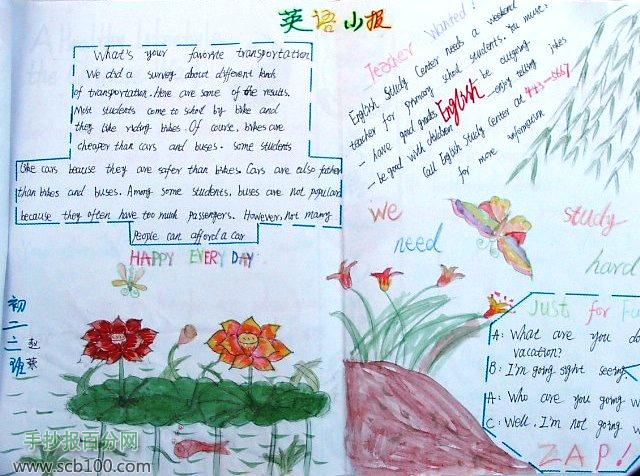 英语小报
What's your favorite transportation
We did a survey about different kinds
of transportation. Here are some of the results.
Most students come to school by bike and
they like riding bikes. Of course, bikes are
cheaper than cars and buses. some students
like cars because they are safer than bikes. Cars are also father
than bikes and buses. Among some students, buses are not popular
because they often have too much passengers. However, not many
people can afford a car
HAPPY EVERY DAY
Teacher Wanted!
English Study Center needs a weekend
teacher for primary school students. You must:
- have good grades English be outgoing
- be good with children - enjoy telling jokes
Call English Study Center at 443-5667
for more information
we
need
study
hard
Just for Fu
A: What are you do
vacation?
B: I'm going sight seeing.
A: Who are you going w
C: Well, I'm not going w
ZAP!
初二二班
手抄报百分网
www.scb100.com